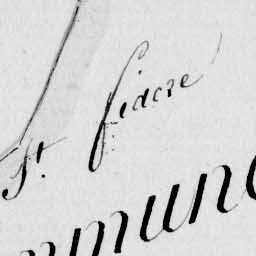 St. fiacre
mmun